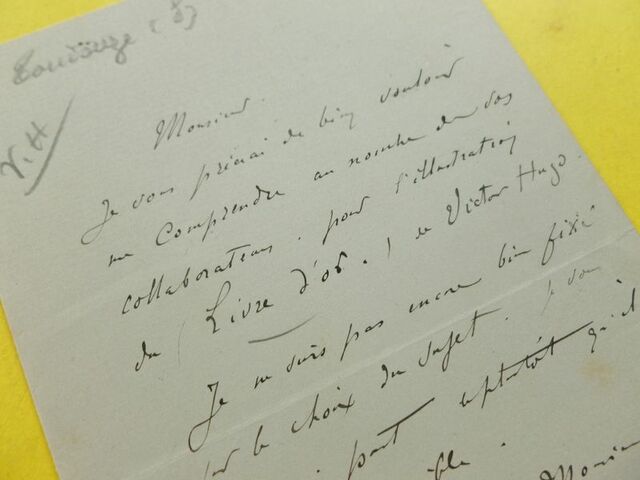 Toudouze (
V. H
Monsieur.
Je vous prierai de bien vouloir
me comprendre au nombre de vos
collaborateurs. pour l'illustration
du (Livre d'or.) de Victor Hugo.
Je ne suis pas encore bien fixé
sur le choix du sujet. je vous
part aussitôt qu'il
Monsieur